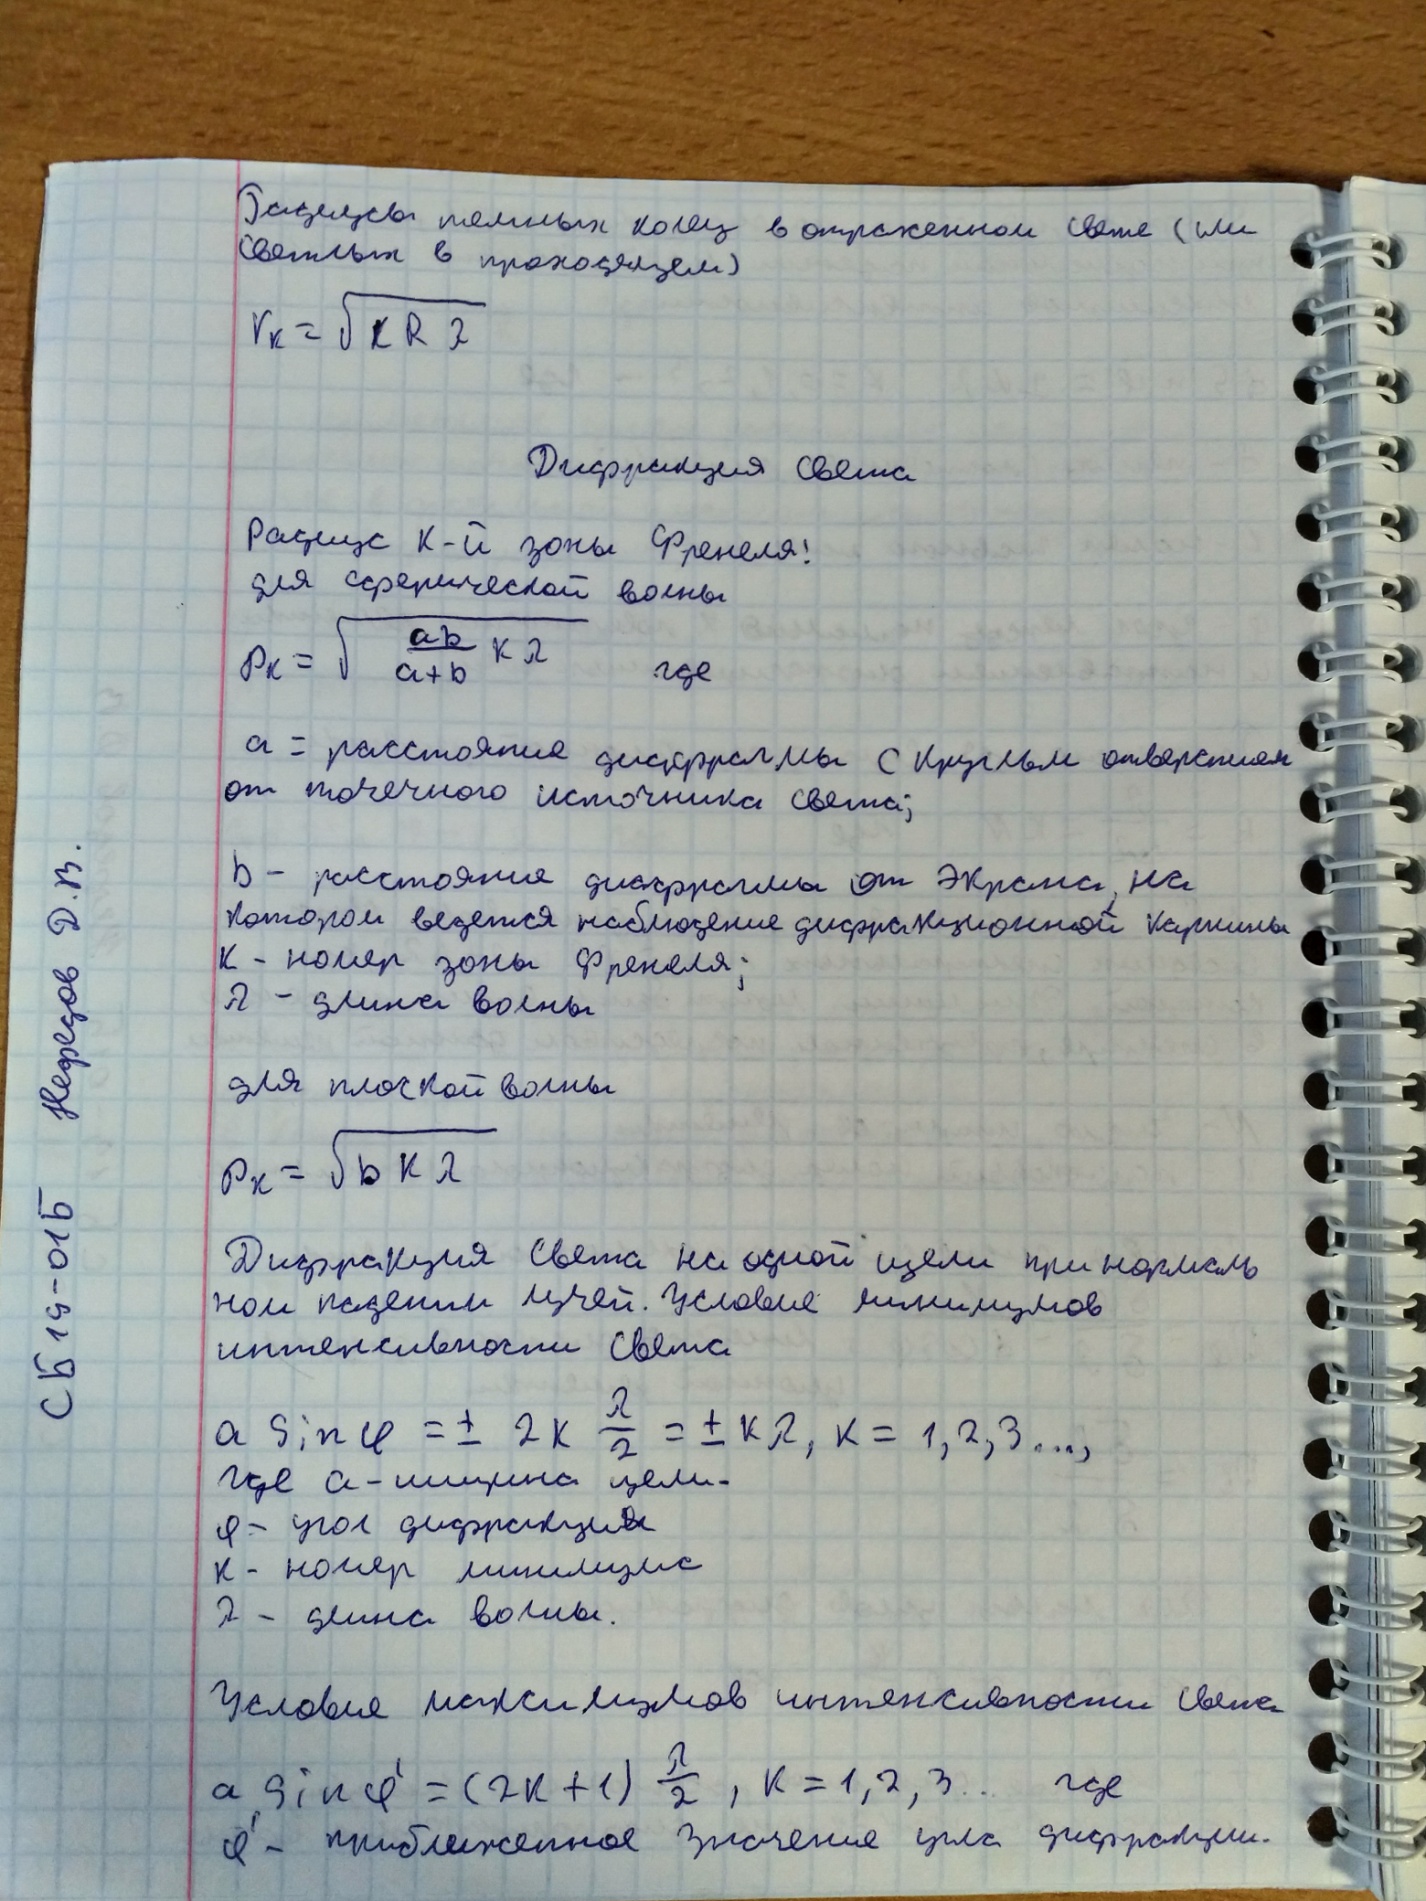 Радиусы темных колец в отраженном свете (или
светлых в проходящем)
r_к = √(к R λ)
Дифракция света
Радиус К-й зоны Френеля:
для сферической волны
ρ_к = √(ab/(a+b) к λ) где
a = расстояние диафрагмы с круглым отверстием
от точечного источника света;
b - расстояние диафрагмы от экрана, на
котором ведется наблюдение дифракционной картины
К - номер зоны Френеля;
λ - длина волны
для плоской волны
ρ_к = √(b к λ)
Дифракция света на одной щели при нормаль
ном падении лучей. Условие минимумов
интенсивности света
a sin φ = ± 2к λ/2 = ± к λ, к = 1, 2, 3...,
где a - ширина щели.
φ - угол дифракции
к - номер минимума
λ - длина волны.
Условие максимумов интенсивности света
a sin φ' = (2к + 1) λ/2, к = 1, 2, 3... где
φ' - приближенное значение угла дифракции.
СБ19-01Б Нефедов Д.В.